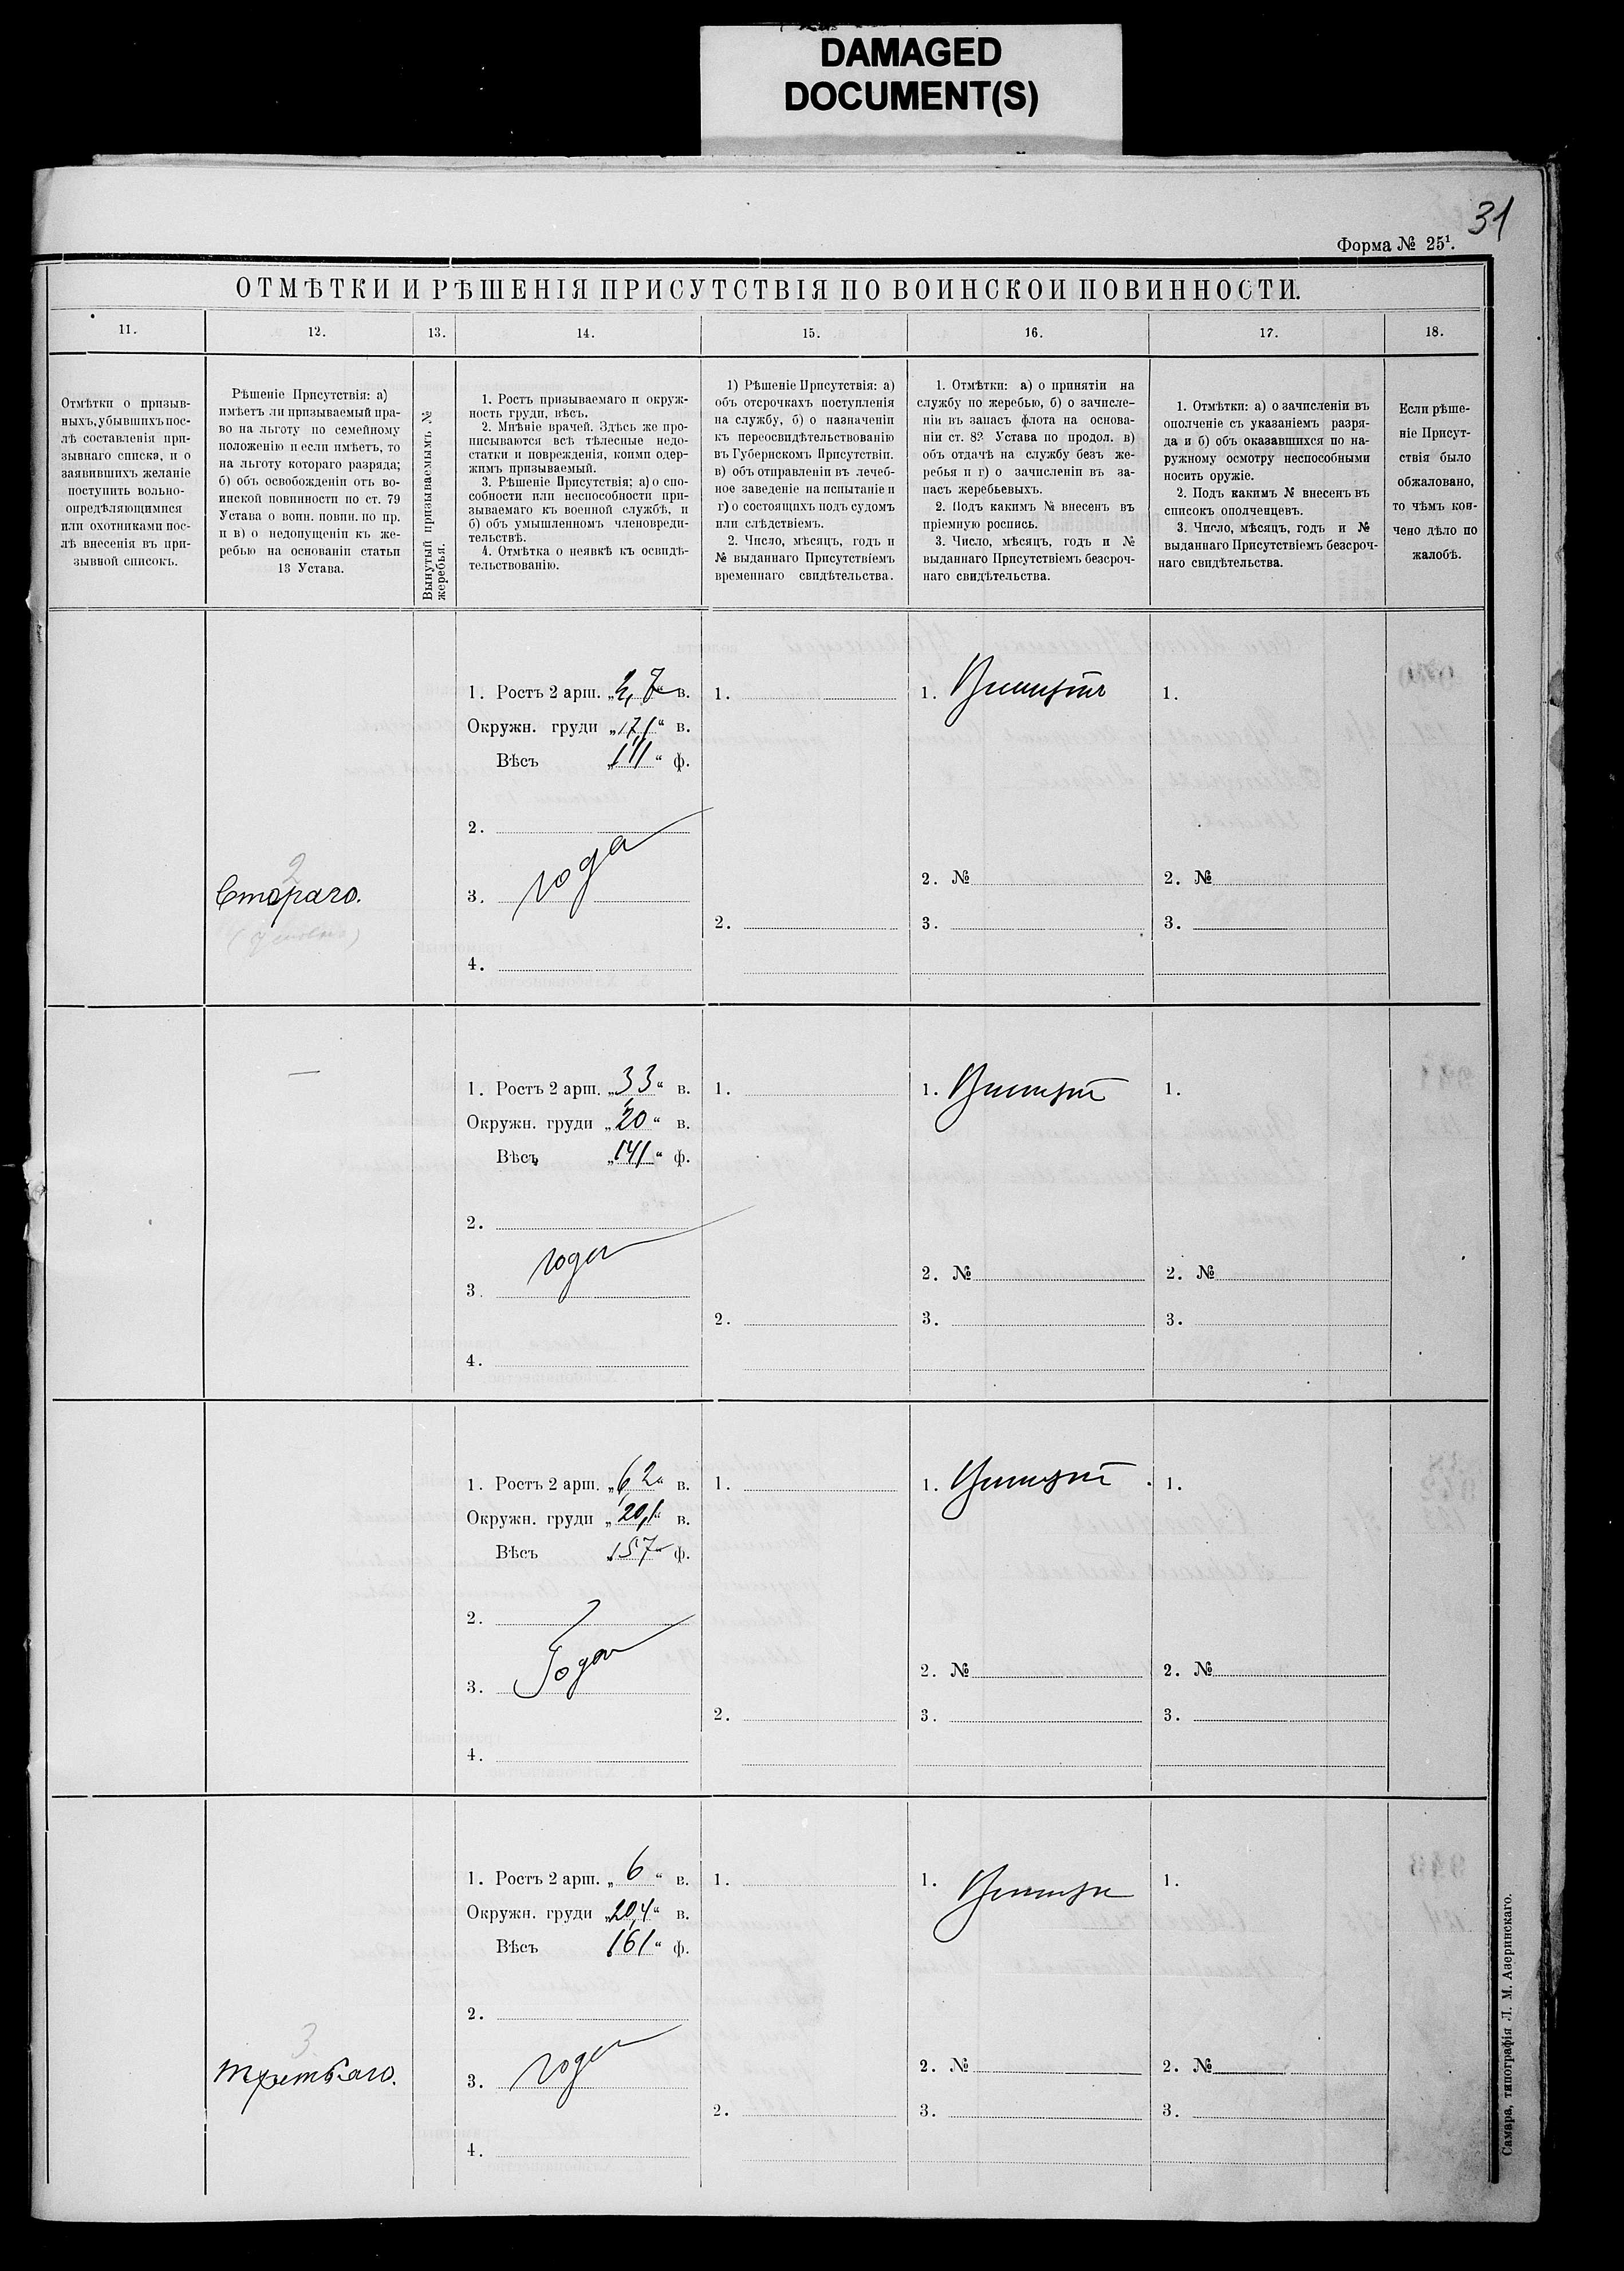 DAMAGED
DOCUMENT(S)
31
Форма № 25¹.
ОТМѢТКИ И РѢШЕНІЯ ПРИСУТСТВІЯ ПО ВОИНСКОИ ПОВИННОСТИ.
11.
12.
13.
14.
15.
16.
17.
18.
Отмѣтки о призыв-
ныхъ, убывшихъ пос-
лѣ составленія при-
зывнаго списка, и о
заявившихъ желаніе
поступить вольно-
опредѣляющимися
или охотниками пос-
лѣ внесенія въ при-
зывной списокъ.
Рѣшеніе Присутствія: а)
имѣетъ ли призываемый пра-
во на льготу по семейному
положенію и если имѣетъ, то
на льготу котораго разряда;
б) объ освобожденіи отъ во-
инской повинности по ст. 79
Устава о воин. повин. по пр.
и в) о недопущеніи къ же-
ребью на основаніи статьи
13 Устава.
Вынутый призываемымъ №
жеребья.
1. Ростъ призываемаго и окруж-
ность груди, вѣсъ.
2. Мнѣніе врачей. Здѣсь же про-
писываются всѣ тѣлесные недо-
статки и поврежденія, коими одер-
жимъ призываемый.
3. Рѣшеніе Присутствія; а) о спо-
собности или неспособности при-
зываемаго къ военной службѣ, и
б) объ умышленномъ членовреди-
тельствѣ.
4. Отмѣтка о неявкѣ къ освидѣ-
тельствованію.
1) Рѣшеніе Присутствія: а)
объ отсрочкахъ поступленія
на службу, б) о назначеніи
къ переосвидѣтельствованію
въ Губернскомъ Присутствіи.
в) объ отправленіи въ лечеб-
ное заведеніе на испытаніе и
г) о состоящихъ подъ судомъ
или слѣдствіемъ.
2. Число, мѣсяцъ, годъ и
№ выданнаго Присутствіемъ
временнаго свидѣтельства.
1. Отмѣтки: а) о принятіи на
службу по жеребью, б) о зачисле-
ніи въ запасъ флота на основа-
ніи ст. 82 Устава по продол. в)
объ отдачѣ на службу безъ же-
ребья и г) о зачисленіи въ за-
пасъ жеребьевыхъ.
2. Подъ какимъ № внесенъ въ
пріемную роспись.
3. Число, мѣсяцъ, годъ и №
выданнаго Присутствіемъ безсроч-
наго свидѣтельства.
1. Отмѣтки: а) о зачисленіи въ
ополченіе съ указаніемъ разря-
да и б) объ оказавшихся по на-
ружному осмотру неспособными
носить оружіе.
2. Подъ какимъ № внесенъ въ
списокъ ополченцевъ.
3. Число, мѣсяцъ, годъ и №
выданнаго Присутствіемъ безсроч-
наго свидѣтельства.
Если рѣше-
ніе Присут-
ствія было
обжаловано,
то чѣмъ кон-
чено дѣло по
жалобѣ.
1. Ростъ 2 арш. „2, 7“ в.
Окружн. груди „17,1“ в.
Вѣсъ „111“ ф.
2.
3. года
4.
2
Втораго.
1.
2.
1.
2. №
3.
1.
2. №
3.
—
1. Ростъ 2 арш. „3,3“ в.
Окружн. груди „20“ в.
Вѣсъ „141“ ф.
2.
3. годен
4.
1.
2.
1.
2. №
3.
1.
2. №
3.
1. Ростъ 2 арш. „6,2“ в.
Окружн. груди „20,1“ в.
Вѣсъ „157“ ф.
2.
3. Годен
4.
1.
2.
1.
2. №
3.
1.
2. №
3.
1. Ростъ 2 арш. „6“ в.
Окружн. груди „20,4“ в.
Вѣсъ „161“ ф.
2.
3. годен
4.
3
Третьяго.
1.
2.
1.
2. №
3.
1.
2. №
3.
Самара, типографія Л. М. Азеринскаго.